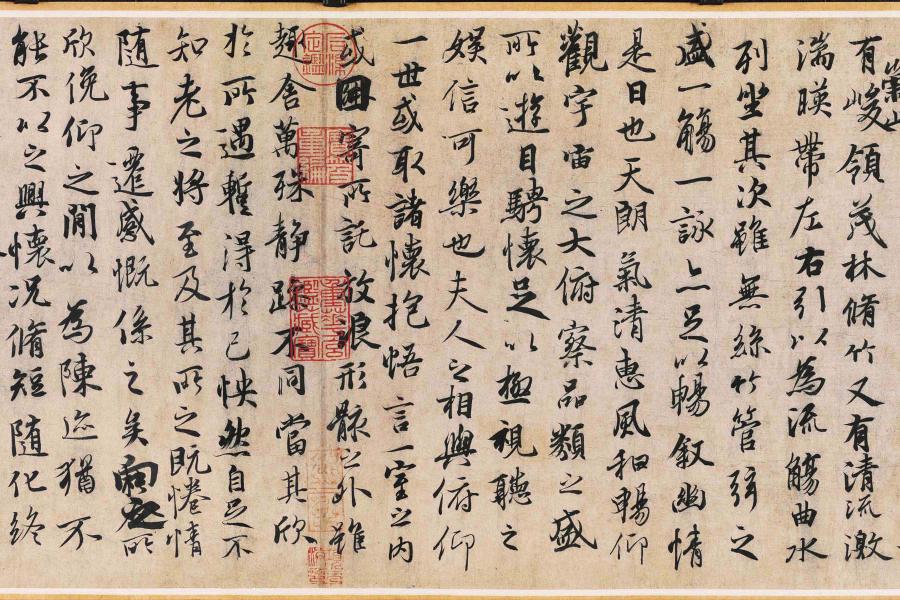 有崇山峻領茂林脩竹又有清流激
湍暎帶左右引以為流觴曲水
列坐其次雖無絲竹管弦之
盛一觴一詠亦足以暢叙幽情
是日也天朗氣清惠風和暢仰
觀宇宙之大俯察品類之盛
所以遊目騁懷足以極視聽之
娛信可樂也夫人之相與俯仰
一世或取諸懷抱悟言一室之內
或因寄所託放浪形骸之外雖
趣舍萬殊靜躁不同當其欣
於所遇暫得於己怏然自足不
知老之將至及其所之既惓情
隨事遷感慨係之矣向之所
欣俛仰之閒以為陳迹猶不
能不以之興懷況脩短隨化終